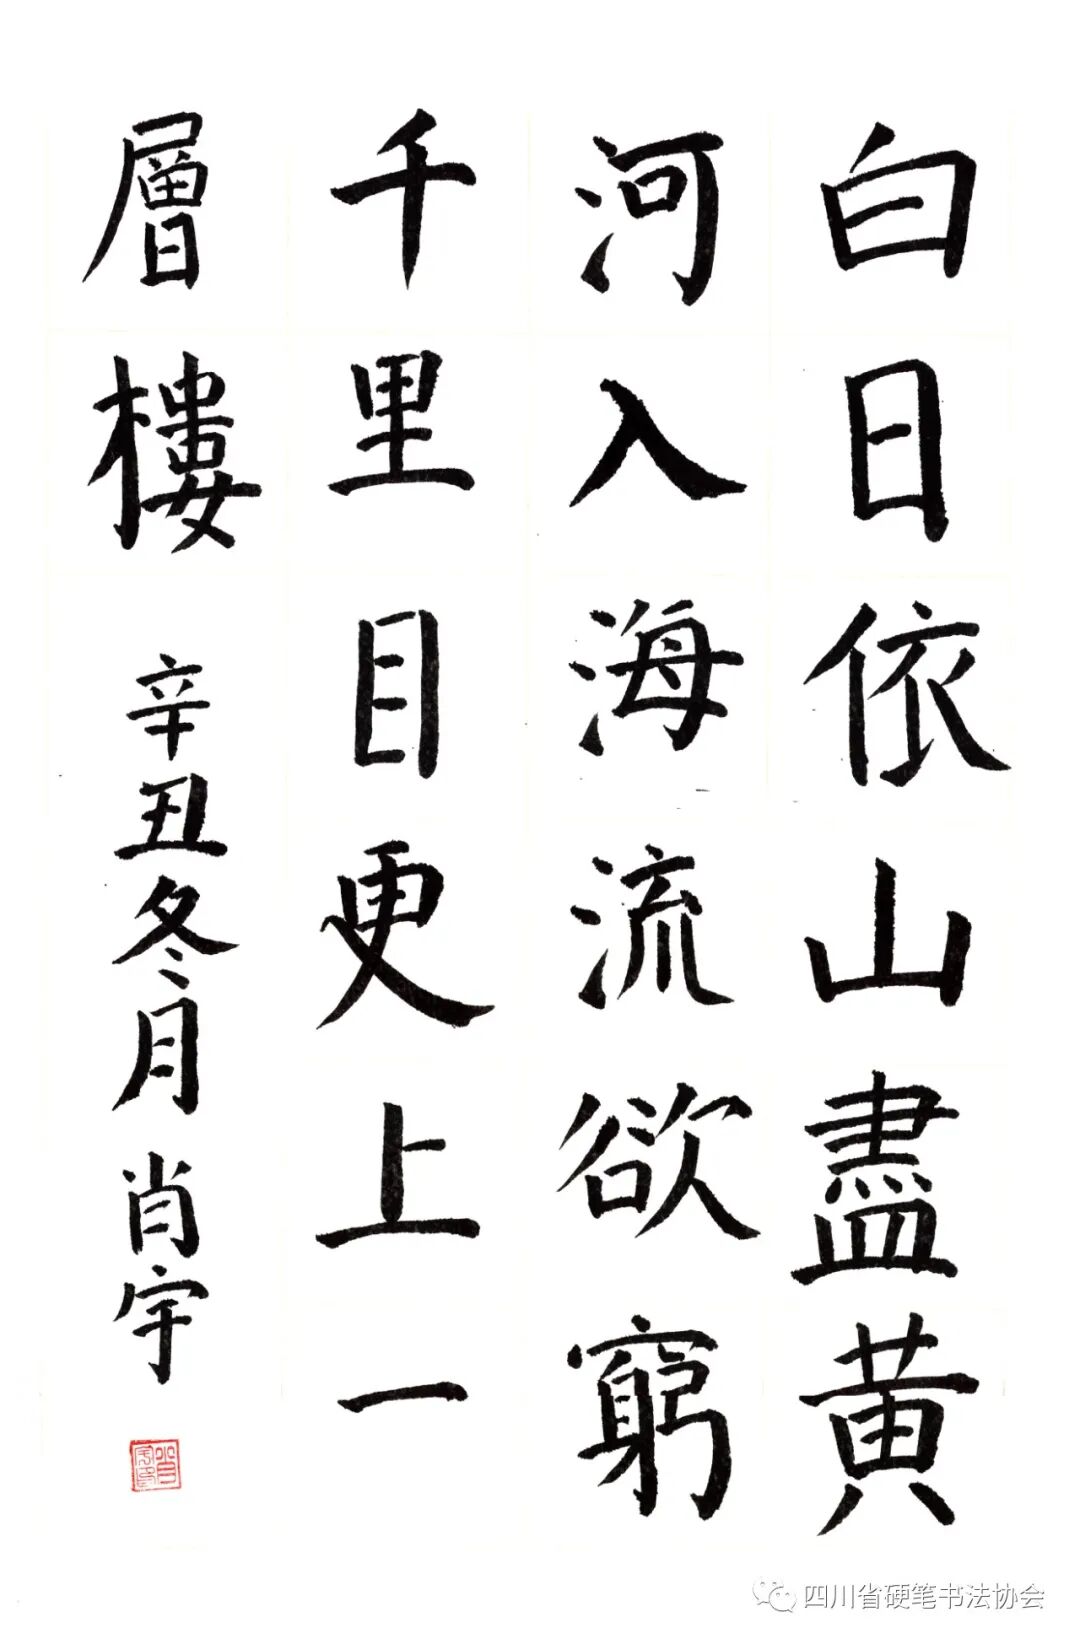 白日依山盡黄
河入海流欲窮
千里目更上一
層樓
辛丑冬月肖宇
四川省硬笔书法协会